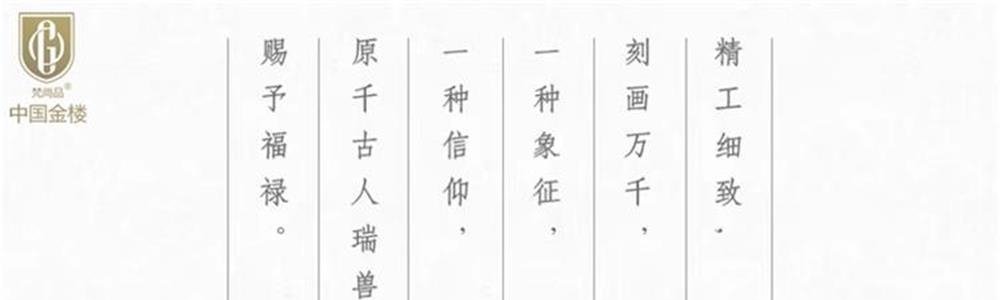 梵尚品®
中国金楼
精工细致，
刻画万千，
一种象征，
一种信仰，
原千古人瑞兽
赐予福禄。